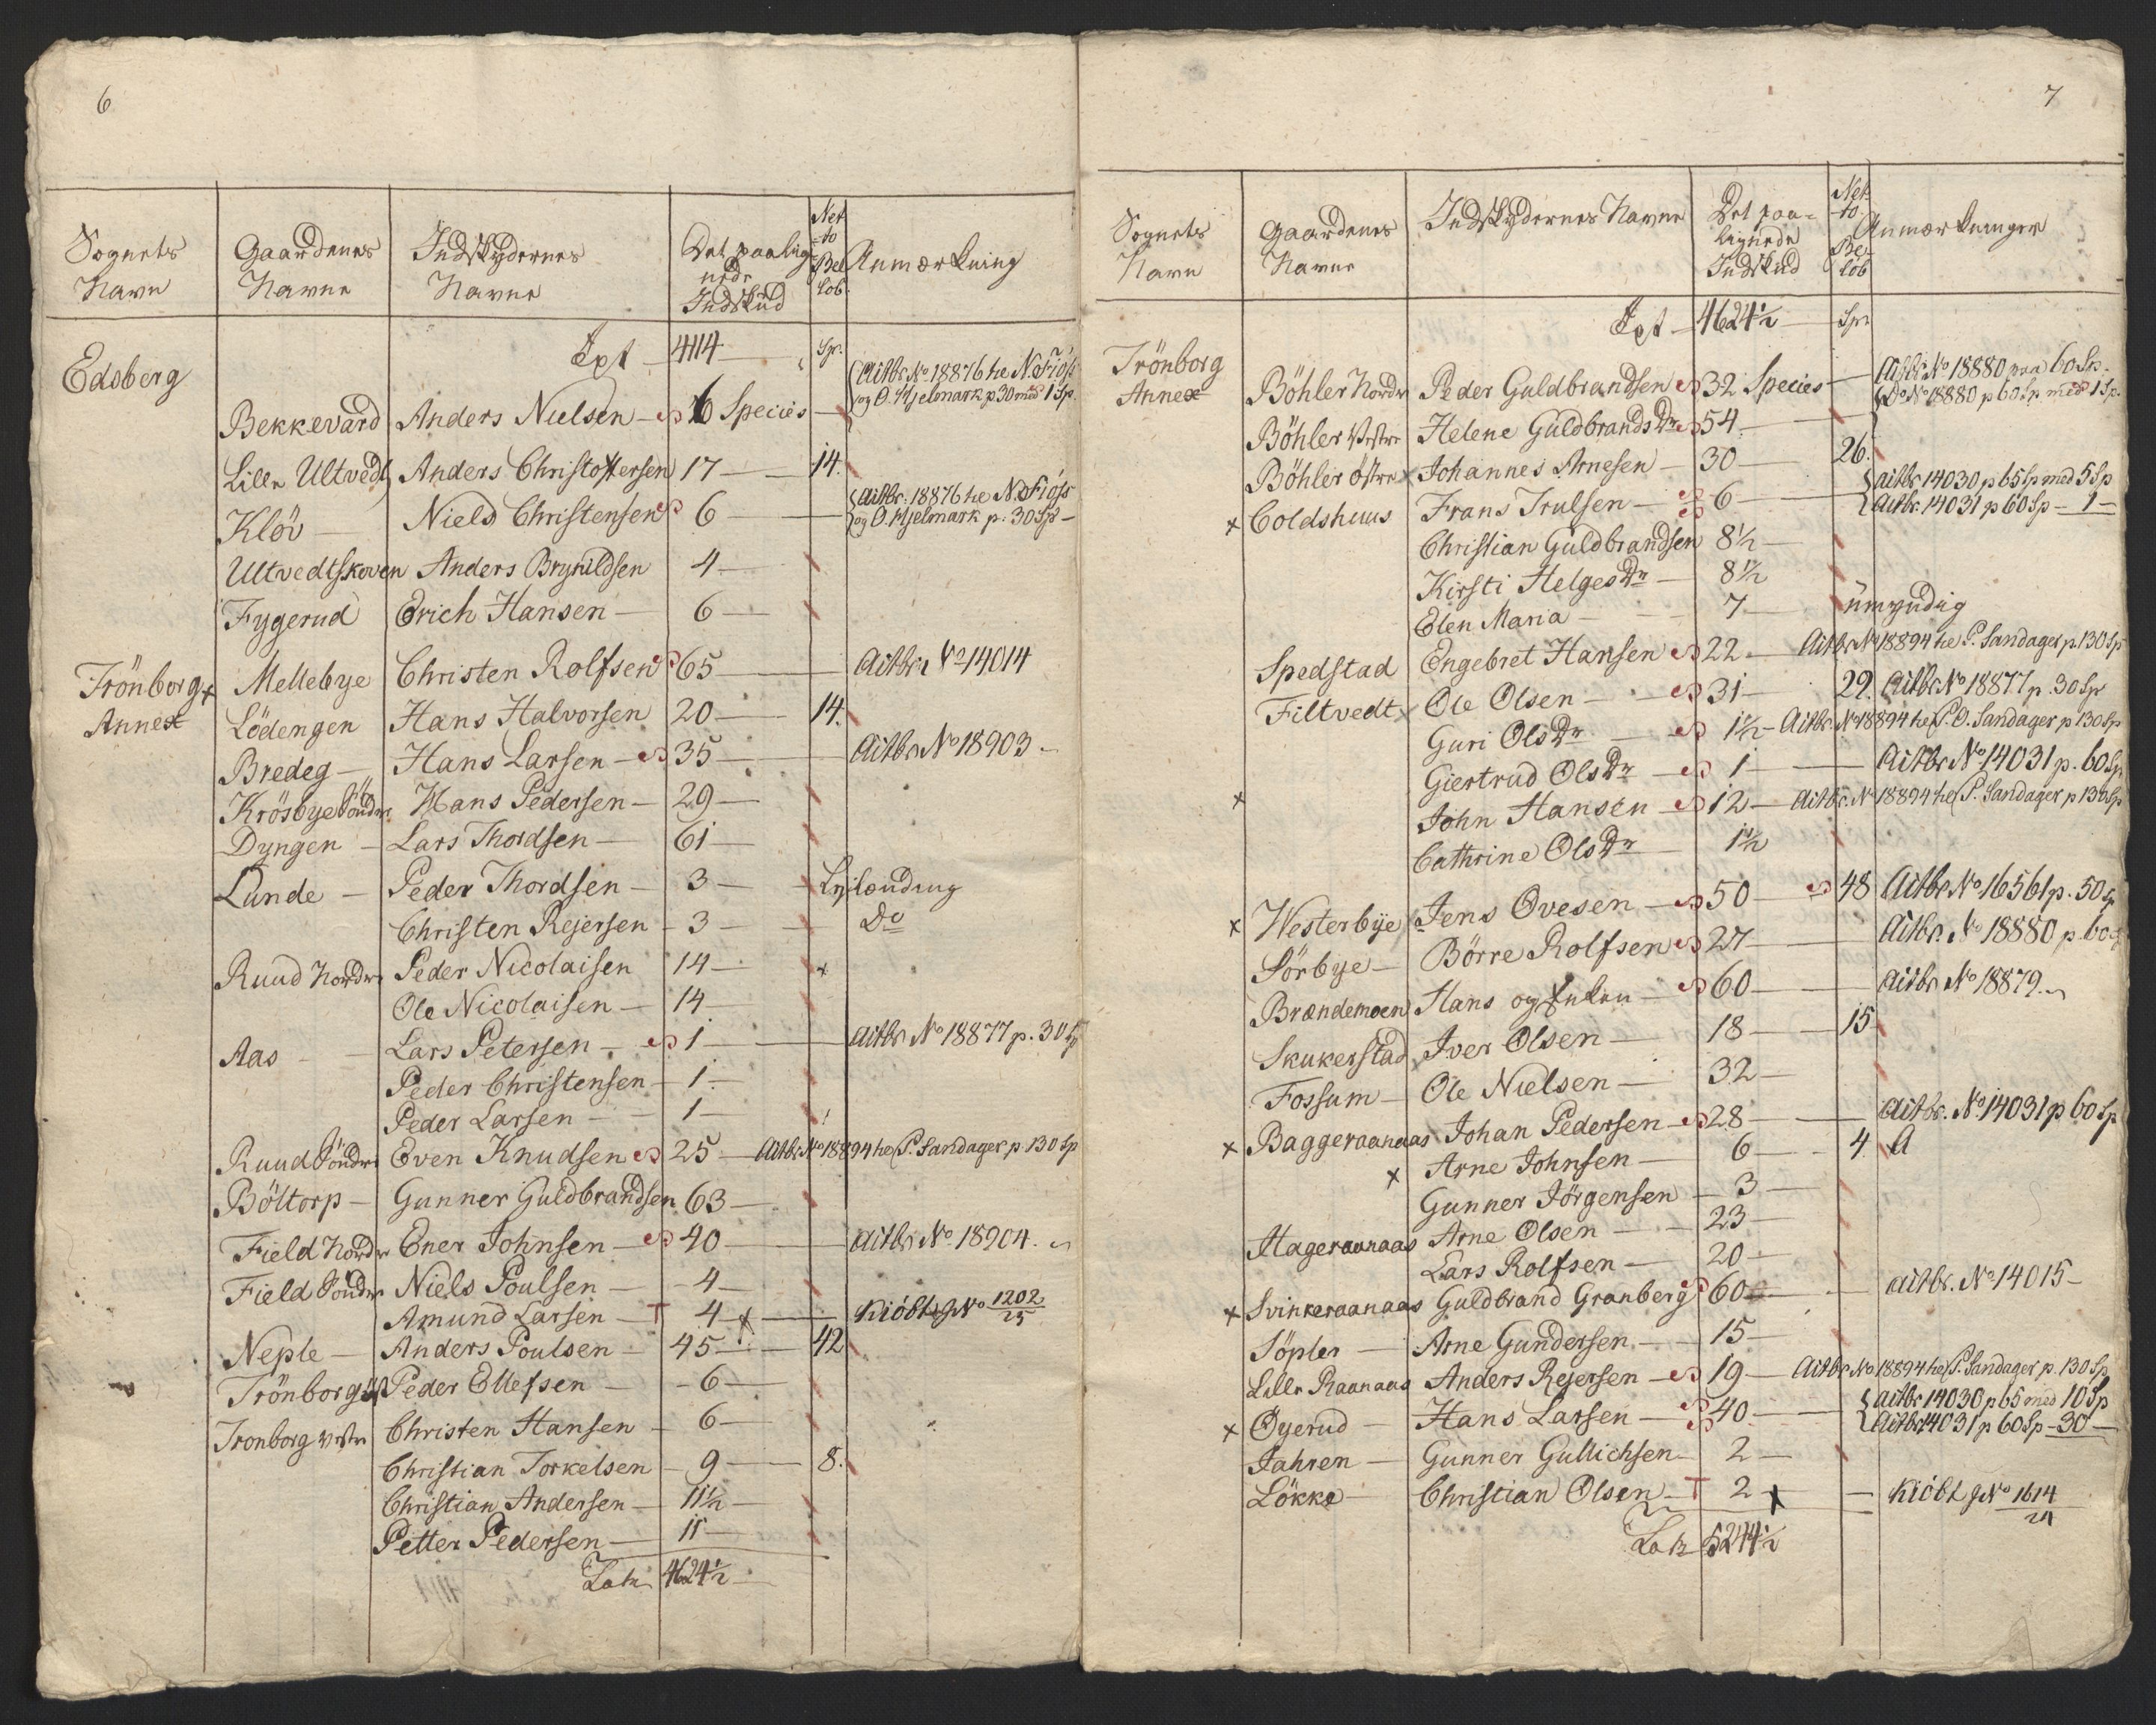 6
Sognets Navn | Gaardenes Navne | Indskydernes Navne | Det paalignede Indskud | Netto Beløb | Anmærkning
Edsberg
Tpt — 4114 — Sp.
Bekkevard | Anders Nielsen — 76 Species — | Actbr. No 18876 he N. Fiøs og O. Hjelmark p 30 med 1 Sp.
Lille Ultvedt | Anders Christoffersen | 17 — 14.
Kløv — | Niels Christensen | 6 — | Actbr. 18876 he N. Fiøs og O. Hjelmark p. 30 Sp —
Ultvedtskoven | Anders Brynildsen | 4 —
Fygerud | Erich Hansen — | 6 —
Trönborg Annex
Mellebye | Christen Rolfsen | 65 — | Actbr. No 14014
Lödengen | Hans Halvorsen | 20 — 14.
Bredeg — | Hans Larsen — | 35 — | Actbr No 18903 —
Krösbye Söndre | Hans Pedersen — | 29 —
Dyngen — | Lars Thordsen — | 61 —
Lunde — | Peder Thordsen — | 3 —
Christen Rejersen — 3 — | Do
Ruud Nordre | Peder Nicolaisen | 14 — x
Ole Nicolaisen — | 14 —
Aas — | Lars Petersen — | 1 — | Actbr No 18877 p. 30 Sp
Peder Christensen — 1 —
Peder Larsen — 1 —
Ruud Söndre | Even Knudsen | 25 — Actbr No 18894 he P. Sandager p 130 Sp
Böltorp — | Gunner Guldbrandsen | 63 —
Field Nordre | Ener Johnsen — | 40 — | Actbr No 18904.
Field Söndre | Niels Poulsen — | 4 —
Amund Larsen — T 4 x — | Kiöbt No 1202/25
Neple — | Anders Poulsen — | 45 — 42
Trönborg öst | Peder Ellefsen — | 6 —
Tronborg vestre | Christen Hansen — | 6 —
Christian Torkelsen — 9 — 8.
Christian Andersen — 11½ —
Petter Pedersen — 11 —
Lats 4624½
7
Sognets Navn | Gaardenes Navne | Indskydernes Navne | Det paalignede Indskud | Netto Beløb | Anmærkninger
Tpt — 4624½ — Sp.
Trönborg Annex
Böhler Nordr | Peder Guldbrandsen | 32 Species — | Actbr No 18880 paa 60 Sp.
Do No 18880 p 60 Sp med 1 Sp.
Böhler Vestre | Helene Guldbrands Dr | 54 —
Böhler östre x | Johannes Arnesen — | 30 — 26.
x Coldshuus | Frans Trulsen — | 6 — | Actbr 14030 p 65 Sp med 5 Sp
Actbr. 14031 p 60 Sp — 1 —
Christian Guldbrandsen 8½ —
Kirsti Helges Dr — 8½
Elen Maria — 7 — umyndig
Spedstad | Engebret Hansen | 22 — Actbr No 18894 he P. Sandager p. 130 Sp
Filtvedt x | Ole Olsen — | 31 — 29. | Actbr No 18877 p. 30 Sp
Guri Ols Dr — 1½ — Actbr. No 18894 he P. O. Sandager p 130 Sp
Giertrud Ols Dr — 1 — Actbr No 14031 p. 60 Sp
x John Hansen — 12 — Actbr. No 18894 he P. Sandager p 130 Sp
Cathrine Ols Dr — 1½
x Westerbye | Jens Ovesen — | 50 — 48 | Actbr No 16561 p. 50 Sp
Sörbye — | Börre Rolfsen | 27 — | Actbr. No 18880 p. 60 Sp
Brændemoen | Hans og Enken — | 60 — | Actbr No 18879.
Skukerstad | Iver Olsen — | 18 — 15
Fossum — | Ole Nielsen — | 32 —
x Baggeraanaas | Johan Pedersen — | 28 — | Actbr. No 14031 p 60 Sp
x Arne Johnsen — 6 — 4. A
Gunner Jörgensen — 3 —
Hageraanaas | Arne Olsen — | 23 —
Lars Rolfsen — 20 —
x Svinkeraanaas | Guldbrand Granberg | 60 — | Actbr. No 14015 —
Söpler — | Arne Gundersen — | 15 —
Lille Raanaas | Anders Rejersen — | 19 — Actbr No 18894 he P. Sandager p. 130 Sp
x Øyerud — | Hans Larsen — | 40 — | Actbr 14030 p 65 med 10 Sp
Actbr 14031 p 60 Sp — 30 —
Jahren — | Gunner Gullichsen | 2 —
Lökke — | Christian Olsen — T | 2 x — | Kiöbt No 1614/24
Lats 5244½